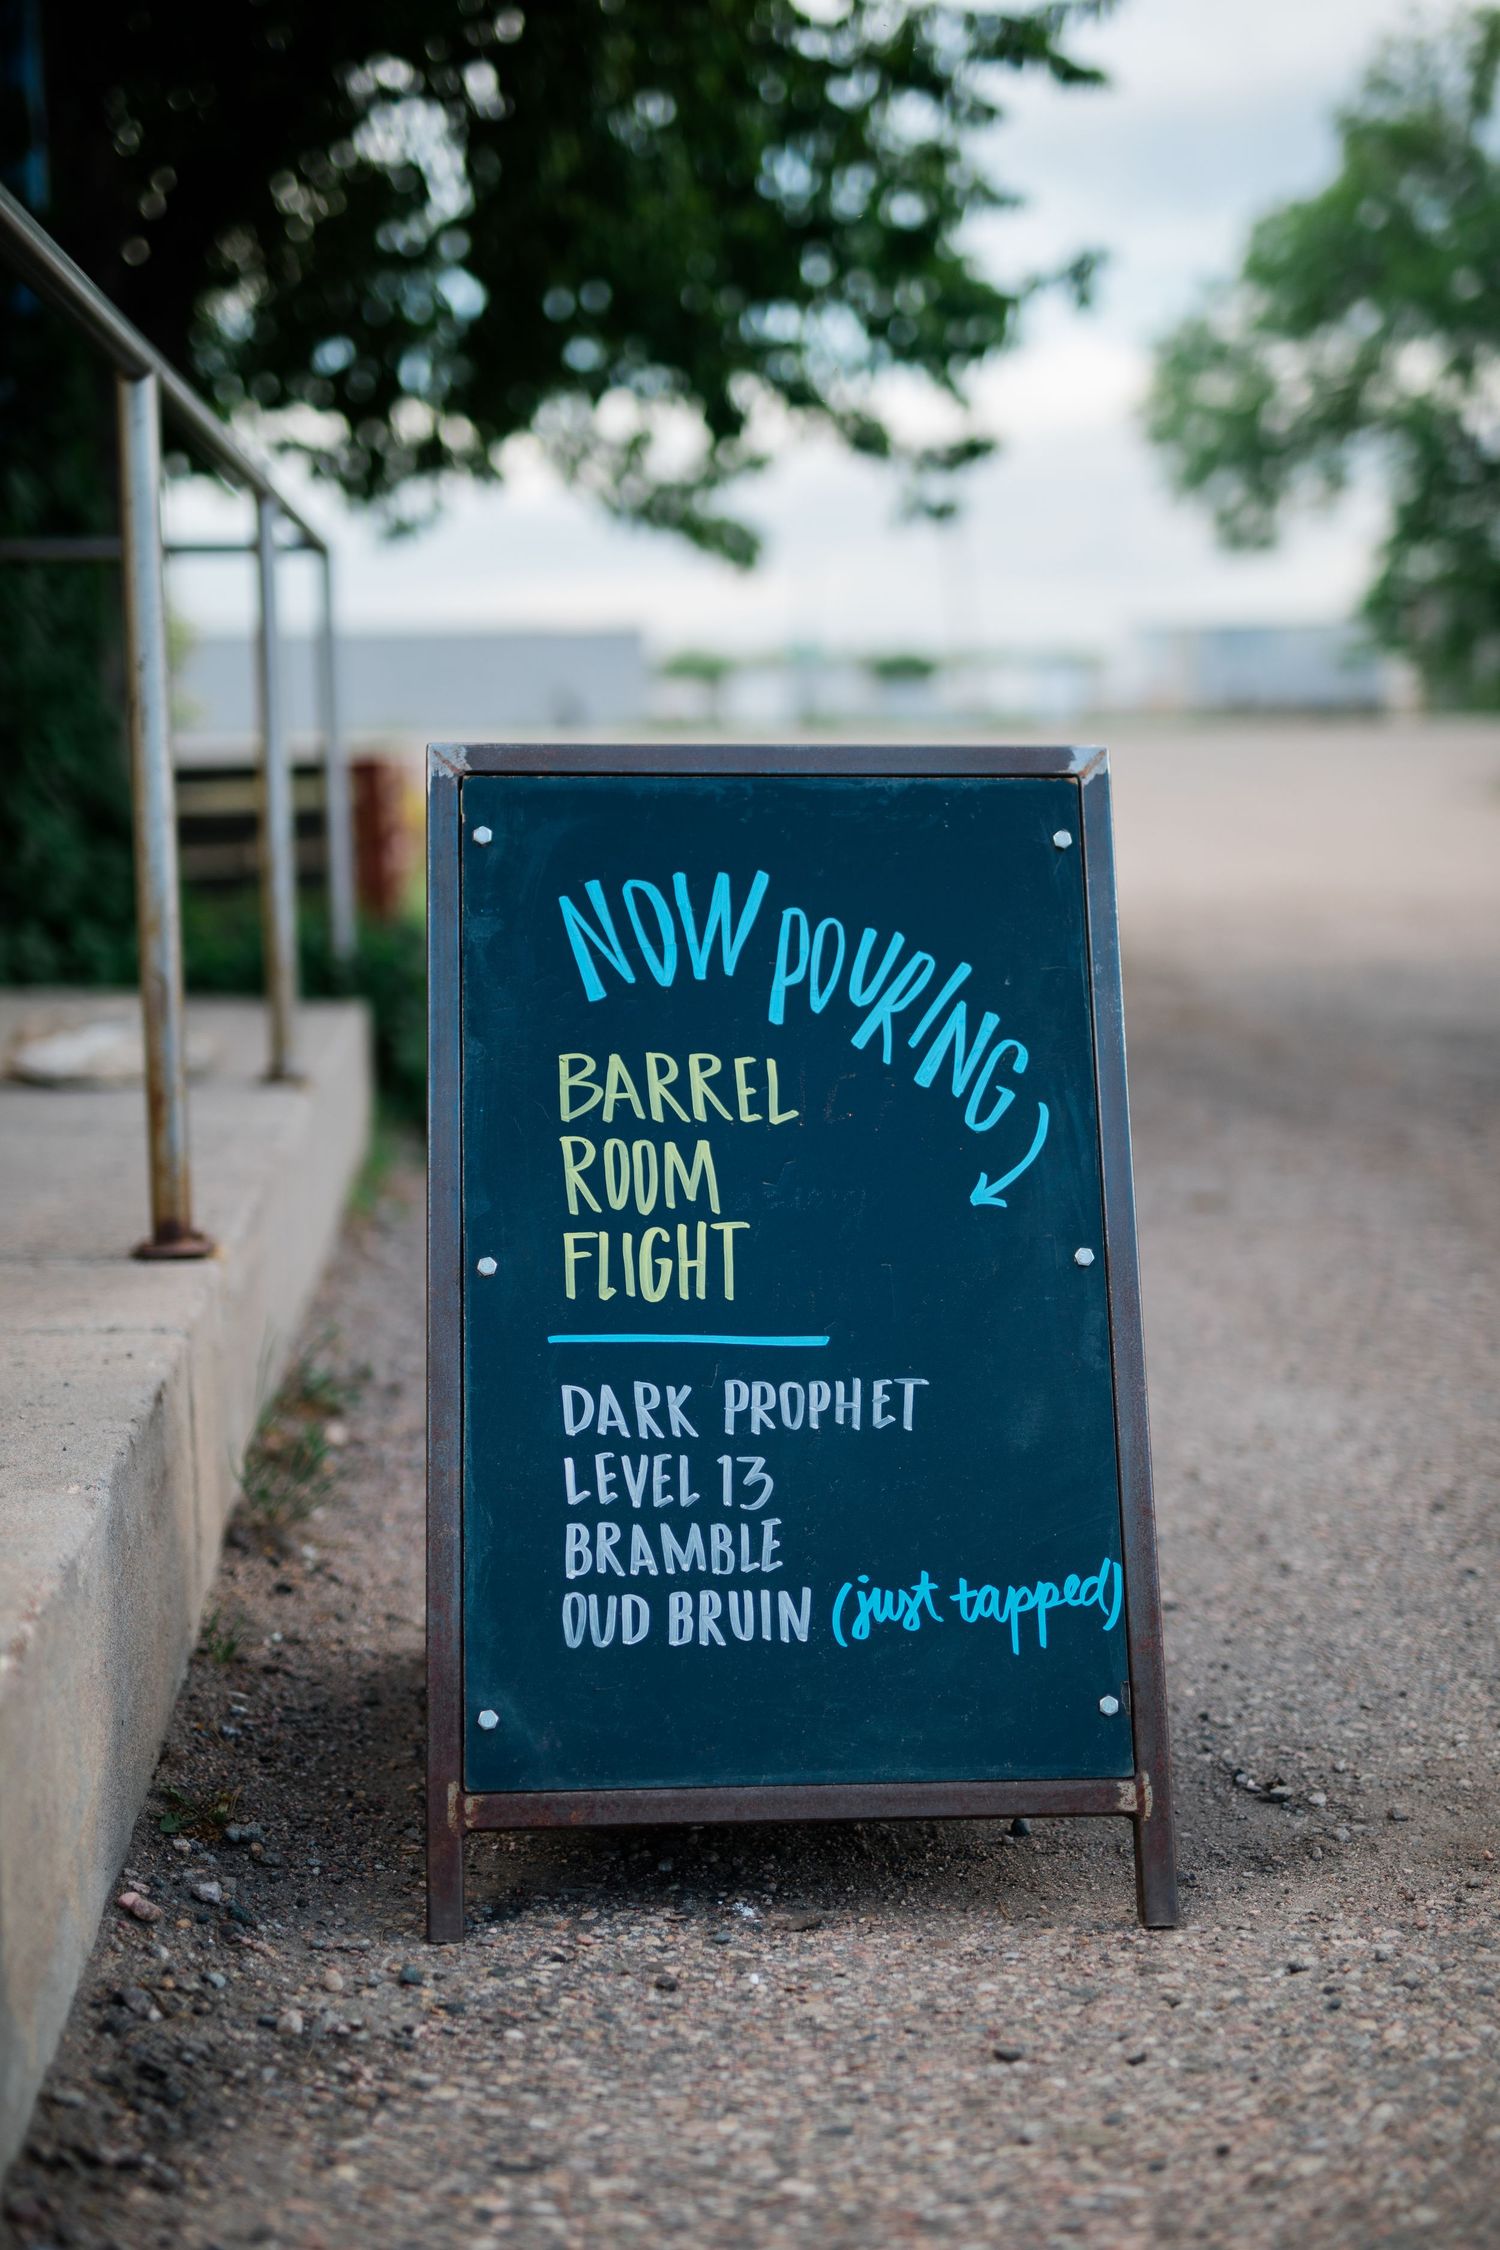 NOW POURING
BARREL
ROOM
FLIGHT
DARK PROPHET
LEVEL 13
BRAMBLE
OUD BRUIN (just tapped)